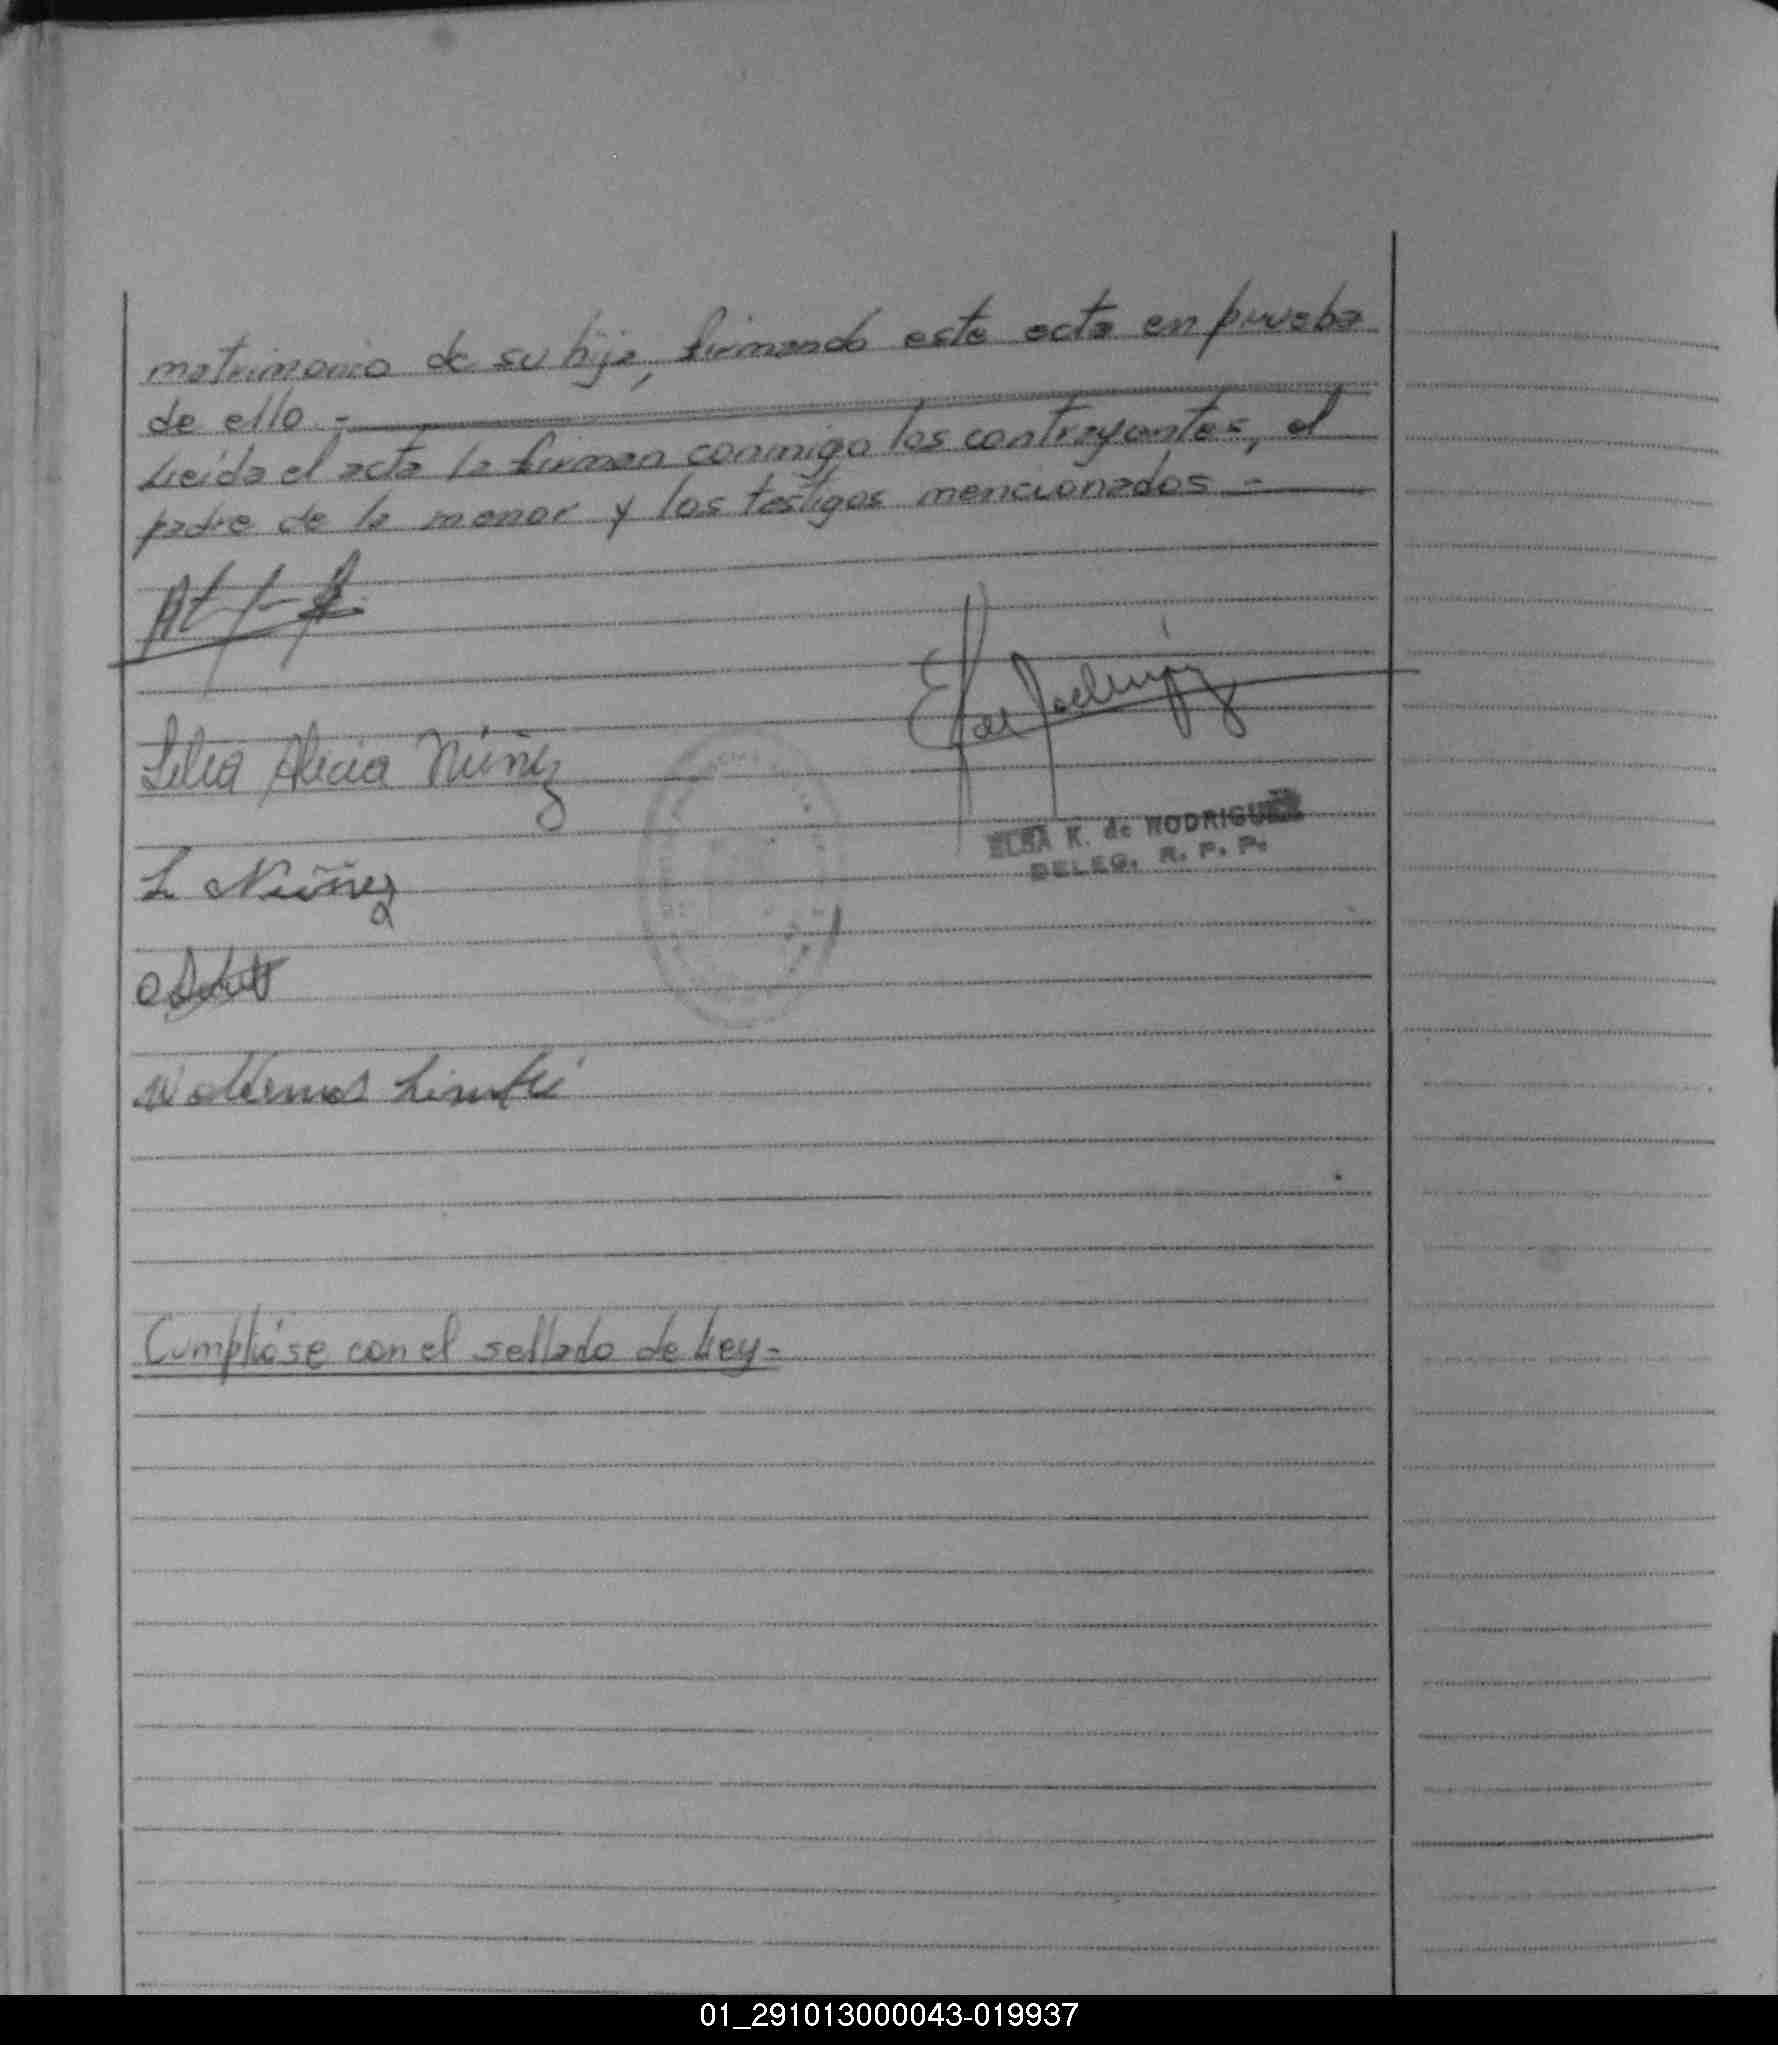 matrimonio de su hija, firmando este acta en prueba
de ello.-
Leída el acta la firman conmigo los contrayentes, el
padre de la menor y los testigos mencionados.-
Lilia Alicia Núñez
ELSA K. de RODRIGUEZ
DELEG. R. P. P.
L Núñez
Cumplióse con el sellado de Ley-
01_291013000043-019937